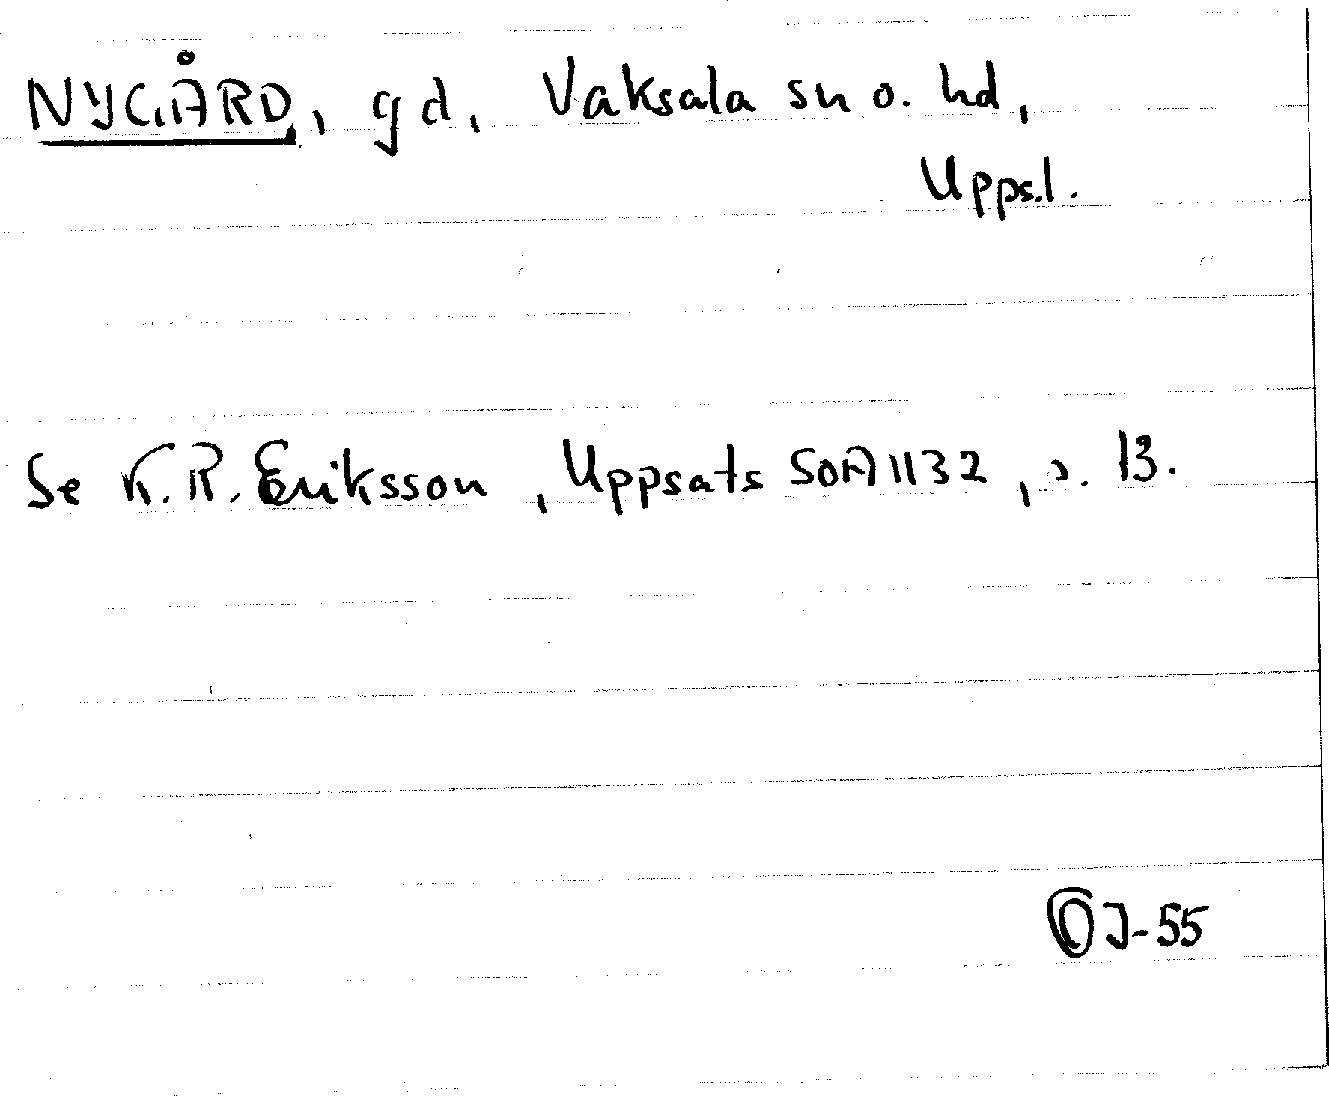 NYGÅRD, gd, Vaksala sn o. hd,
Upps.l.
Se K.R. Eriksson, Uppsats SOA 1132, s. 13.
OJ-55